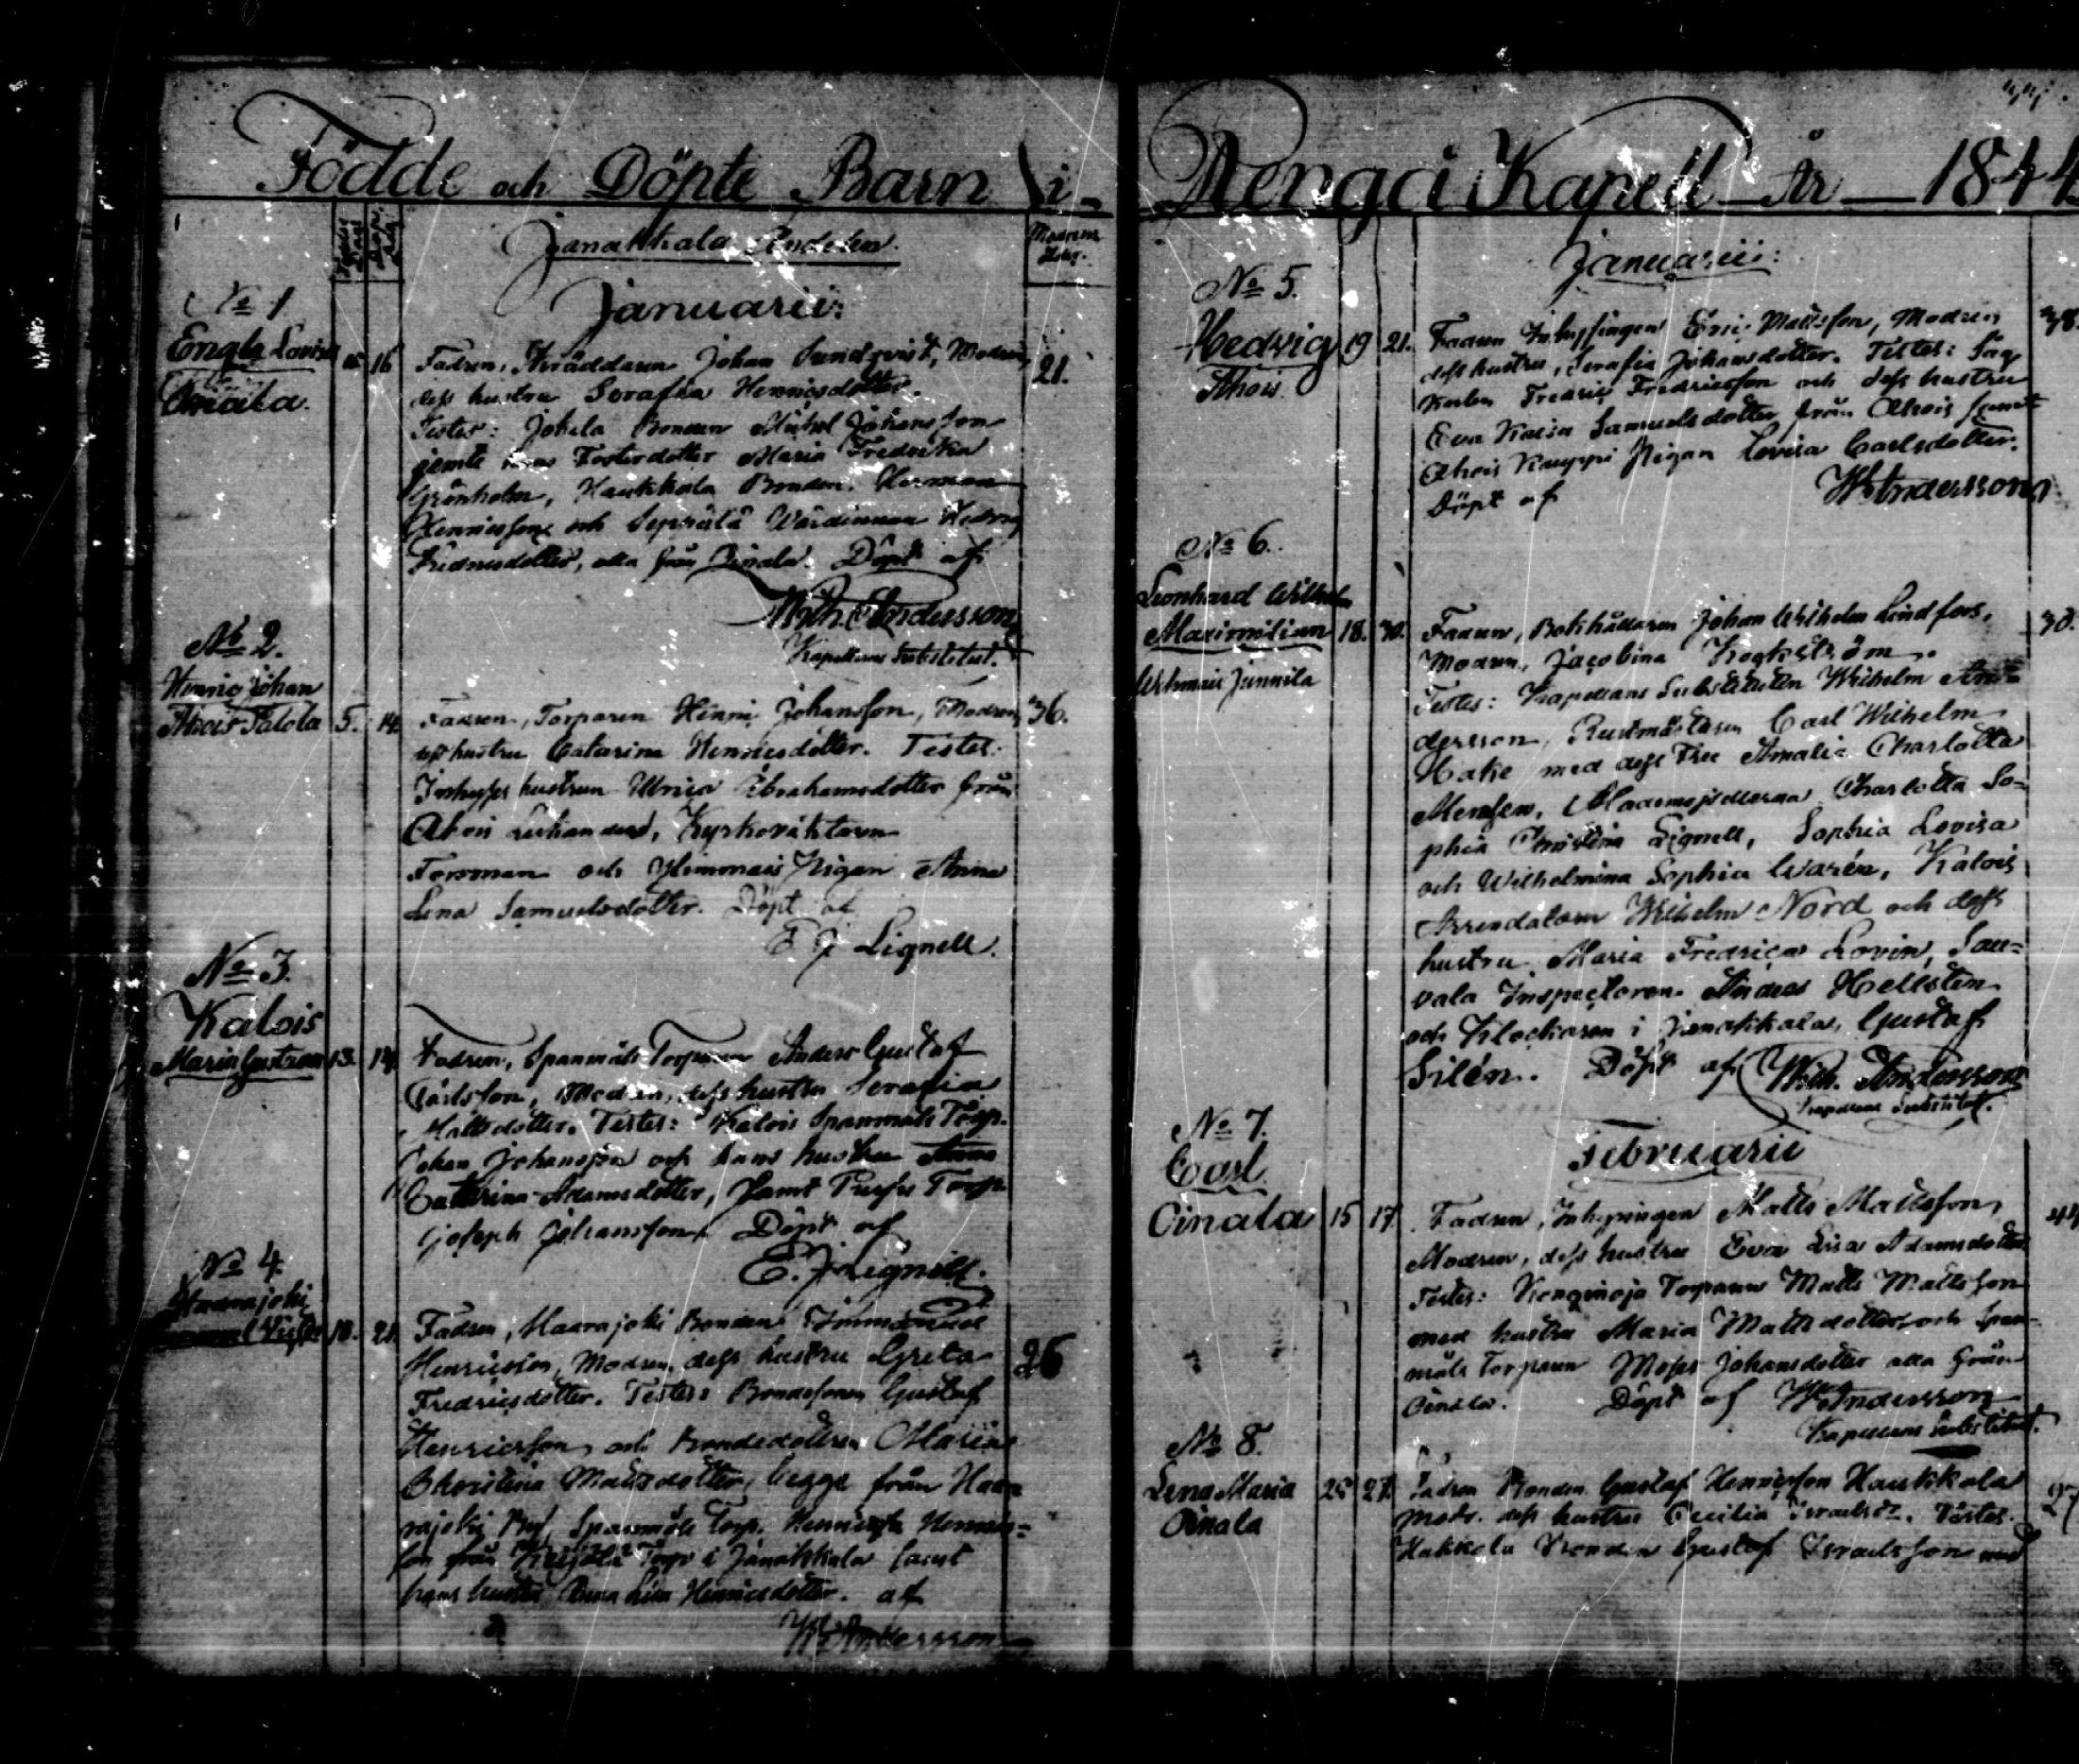 Födde och Döpte Barn i
Januarii:
No 1
Engla Lovisa
16
Fadren, Skräddaren Johan Sundqvist, Modren
21.
dess hustru Serafia Henricsdotter.
Testes: Jokela Bonden Michel Johansson
jemte Fosterdotter Maria Fredrika
Grönholm, Haukkala Bonden Herman
Henricsson och Seppälä Wärdinnan Hedvig
alla från Oinala. Döpt af
Wilh. Andersson
Kapellans Substitut.
No 2.
Henric Johan
Ahois Palola 5. 14.
Fadren, Torparen Henric Johansson, Modren 36.
dess hustru Catarina Henricsdotter. Testes:
hustrun Ulrica Abrahamsdotter från
Ahois Kyrkoväktaren
Forsman och Pigan Anna
Lena Samuelsdotter. Döpt af
E J Lignell.
No 3.
Kalois
Maria Gustava 13. 14.
Fadren, Spanmåls Torparen Anders Gustaf
Carlsson, Modren, dess hustru Serafia
Mattsdotter. Testes: Kalois Spanmåls Torp.
Johan Johansson och hans hustru Anna
Catharina Adamsdotter, samt Torp.
Joseph Johansson. Döpt af
E. J. Lignell.
No 4.
Haarajoki
Fadren, Haarajoki Bonden
Henricsson, Modren, dess hustru Greta
26
Fredricsdotter. Testes: Bondesonen Gustaf
Henricsson och Bondedottren Maria
Christina Mattsdotter, begge från Haa-
rajoki Spanmåls Torp. Henrics-
son från Torp i Janakkala samt
hans hustru Anna Lisa Henricsdotter. af
W Andersson
Renga Kapell År 1844
Januarii:
No 5.
Hedvig 19 21.
Ahois
Fadren Inhysingen Eric Mattsson, Modren
dess hustru, Serafia Johansdotter. Testes:
Fredric Fredricsson och dess hustru
Eva Kaisa Samuelsdotter från Ahois samt
Ahois Kauppi Pigan Lovisa Carlsdotter.
Döpt af
W Andersson
No 6.
Leonhard Wilhelm
Maximilian 18. 30.
Junnila
Fadren, Bokhållaren Johan Wilhelm Lindfors,
30.
Modren, Jacobina
Testes: Kapellans Substituten Wilhelm An-
dersson, Rustmästaren Carl Wilhelm
Hake med dess Fru Amalia Charlotta
Mademoisellerna Charlotta So-
phia Christina Lignell, Sophia Lovisa
och Wilhelmina Sophia Warén, Kalois
Arrendatorn Wilhelm Nord och dess
hustru Maria Fredrica Lovin, Sau-
vala Inspectoren Anders Hellsten
och Klockaren i Janakkala, Gustaf
Silén. Döpt af Wilh. Andersson
Kapellans Substitut.
Februarii
No 7.
Carl
Oinala 15 17.
Fadren, Inhysingen Matts Mattsson,
44
Modren, dess hustru Eva Lisa Adamsdotter
Testes: Torparen Matts Mattsson
med hustru Maria Mattsdotter och Span-
måls Torparen Johansdotter alla från
Oinala. Döpt af W Andersson
Kapellans Substitut.
No 8.
Lena Maria 25 27.
Oinala
Fadren Bonden Gustaf Henricsson Haukkala
27
Modr. dess hustru Cecilia Testes.
Bonden Gustaf Israelsson med